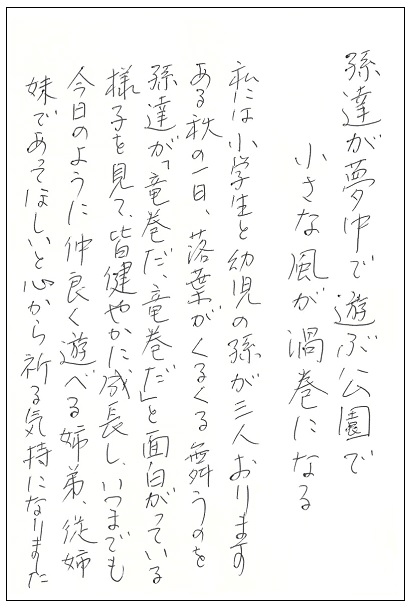 孫達が夢中で遊ぶ公園で
小さな風が渦巻になる
私には小学生と幼児の孫が三人おります
ある秋の一日、落葉がくるくる舞うのを
孫達が「竜巻だ、竜巻だ」と面白がっている
様子を見て、皆健やかに成長し、いつまでも
今日のように仲良く遊べる姉弟、従姉
妹であってほしいと心から祈る気持になりました